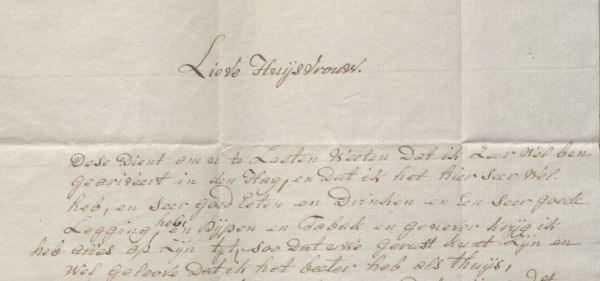 Lieve Huijsvrouw.
Dese Dient om u te Laeten Weeten Dat ik Zeer Wel ben
gearriveert in den Hag, en dat ik het hier seer Wel
heb, en seer goed Eeten en Drinken en Een seer goede
Legging heb, en Pijpen en Tabak en genever krijg ik
heb alles op Zijn tijt, soo dat uwe gerust kunt Zijn en
Wel geloove dat ik het beeter heb als thuijs,